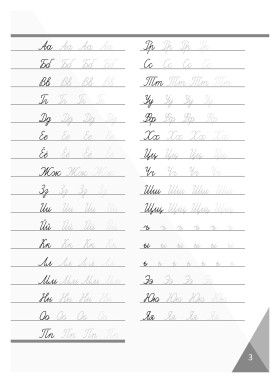 Аа Аа Аа Аа
Бб Бб Бб Бб
Вв Вв Вв Вв
Гг Гг Гг Гг
Дд Дд Дд Дд
Ее Ее Ее Ее
Ёё Ёё Ёё Ёё
Жж Жж Жж
Зз Зз Зз Зз
Ии Ии Ии Ии
Йй Йй Йй Йй
Кк Кк Кк Кк
Лл Лл Лл Лл
Мм Мм Мм Мм
Нн Нн Нн Нн
Оо Оо Оо Оо
Пп Пп Пп Пп
Рр Рр Рр Рр
Сс Сс Сс Сс
Тт Тт Тт Тт
Уу Уу Уу Уу
Фф Фф Фф Фф
Хх Хх Хх Хх
Цц Цц Цц Цц
Чч Чч Чч Чч
Шш Шш Шш Шш
Щщ Щщ Щщ Щщ
ъ ъ ъ ъ ъ
ы ы ы ы ы
ь ь ь ь ь
Ээ Ээ Ээ Ээ
Юю Юю Юю Юю
Яя Яя Яя Яя
3